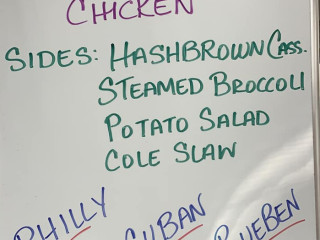 CHICKEN
SIDES: HASHBROWN CASS.
STEAMED BROCCOLI
POTATO SALAD
COLE SLAW
PHILLY CUBAN RUEBEN